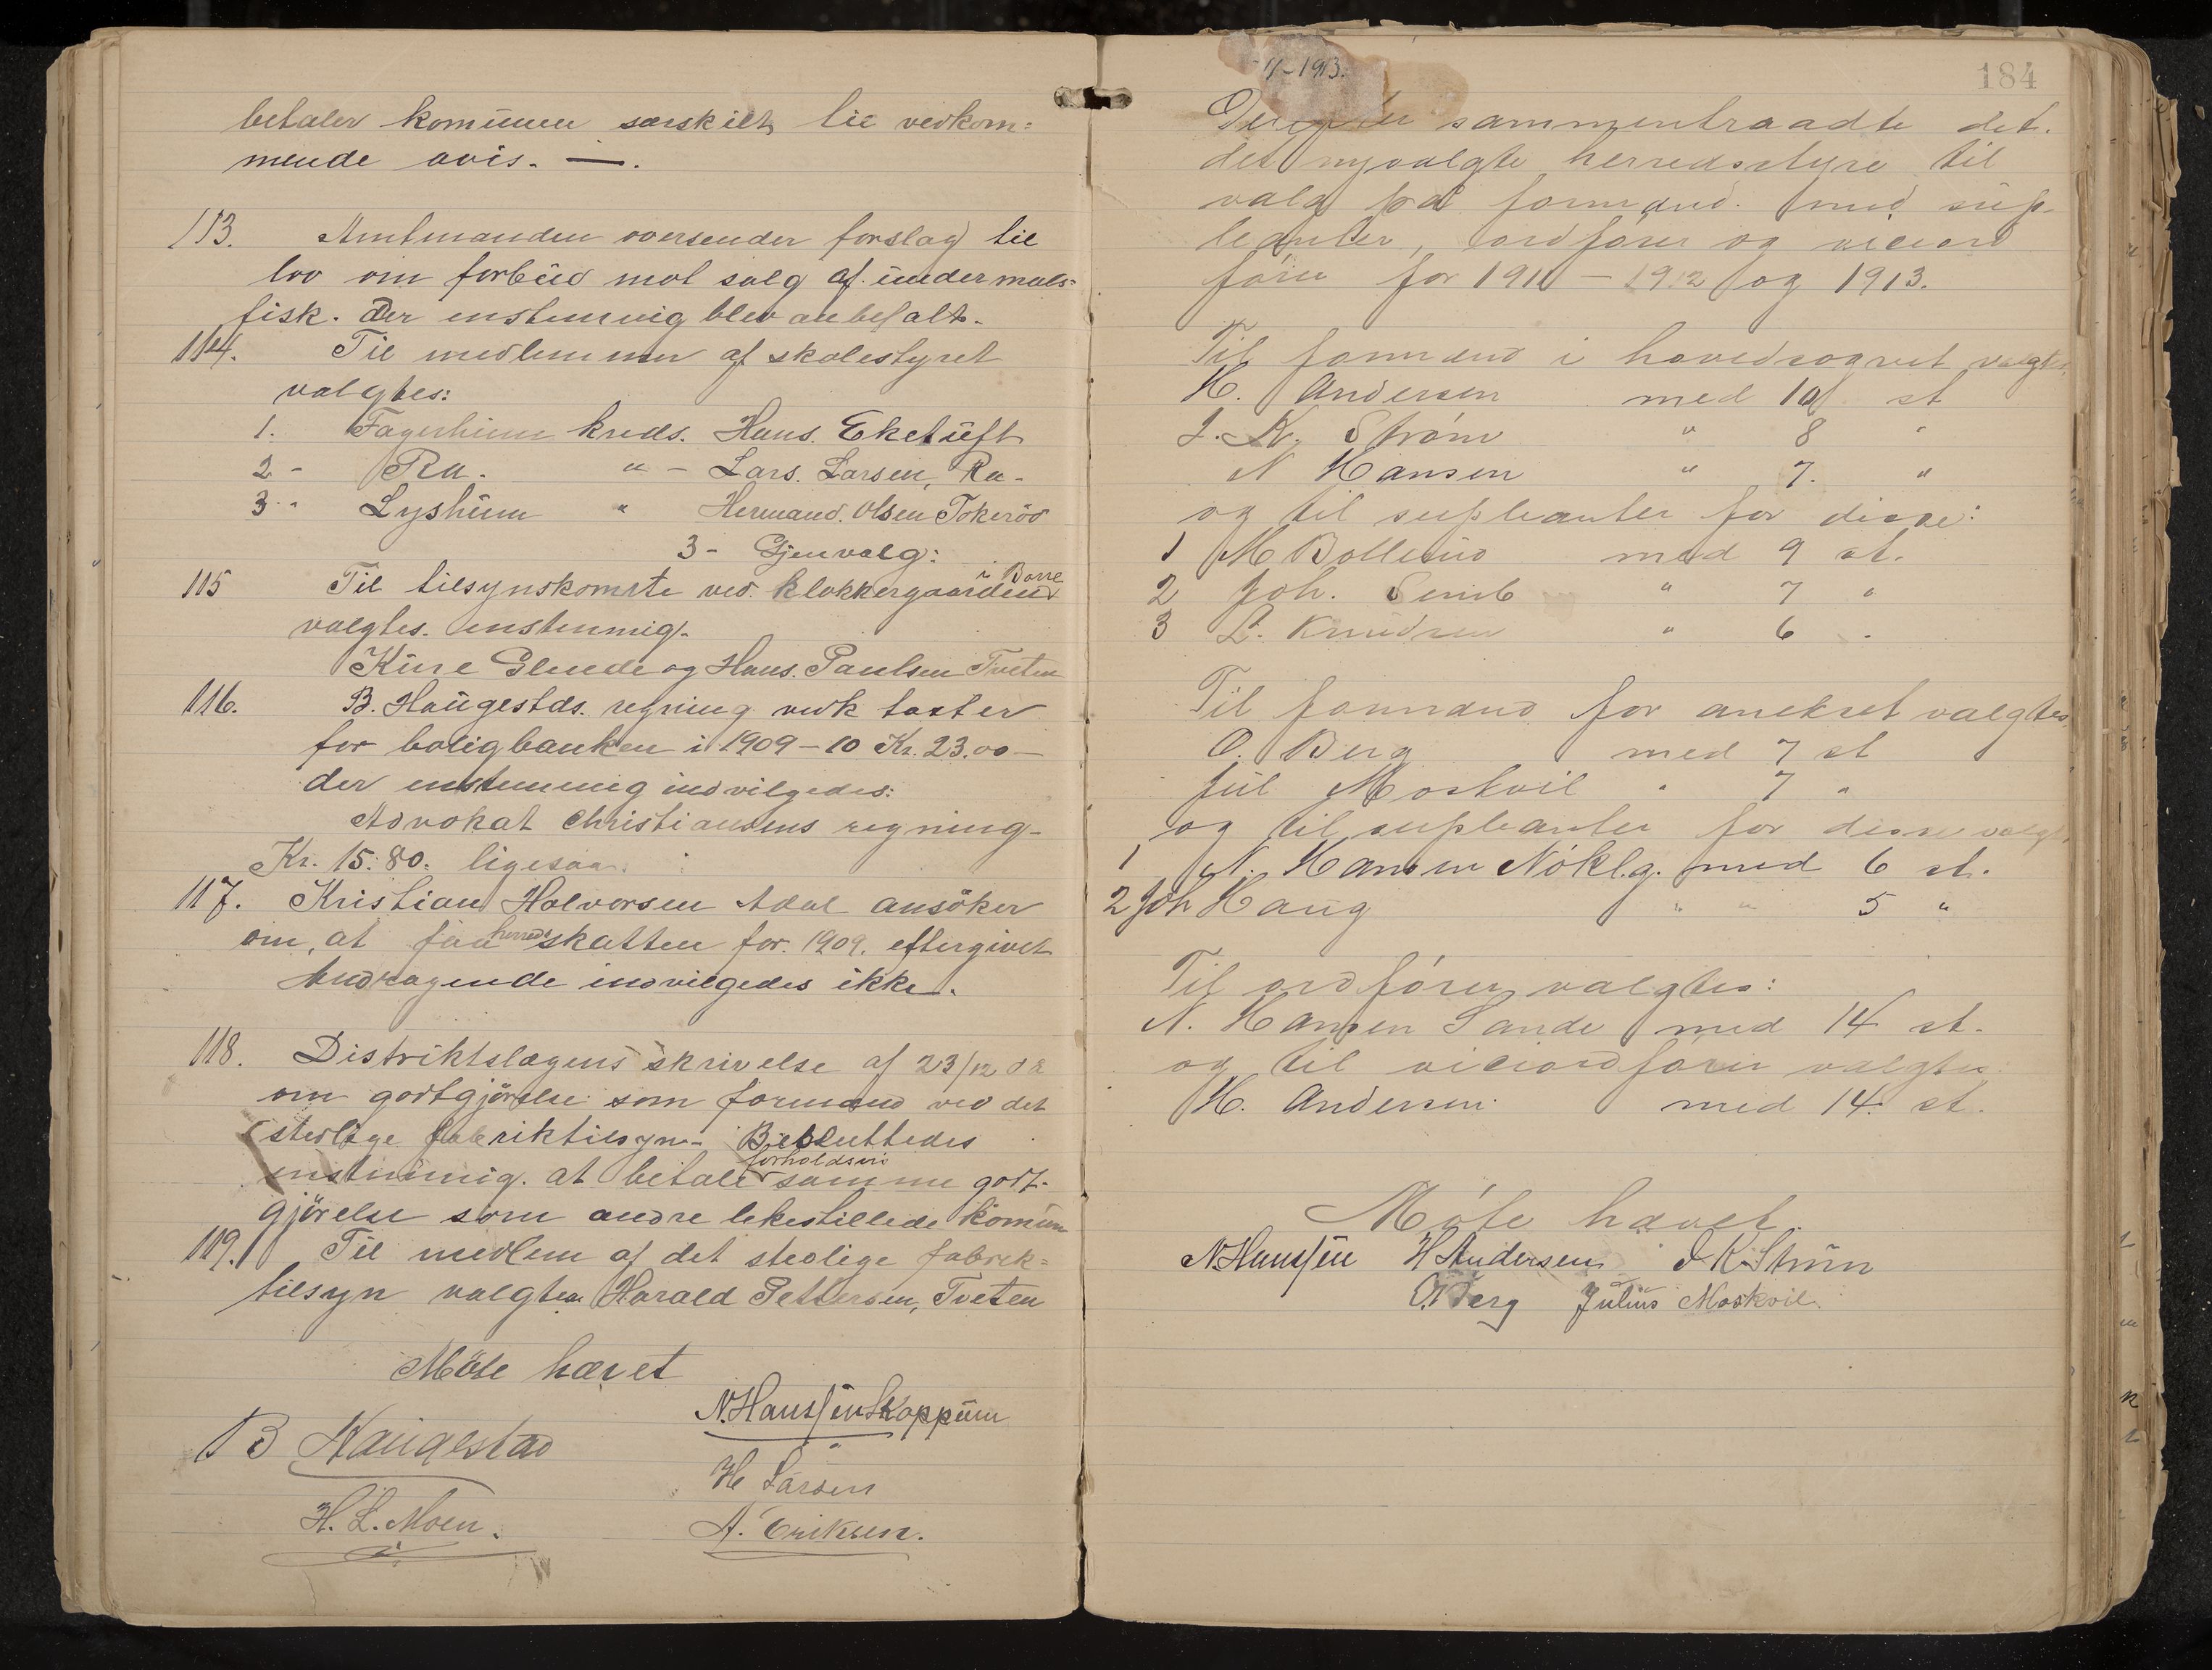 betaler komunen særskilt til vedkom=
mende avis. —.
113. Amtmanden oversender forslag til
lov om forbud mot salg af undermaals=
fisk. Der enstemmig blev anbefalt.
114. Til medlemmer af skolestyret
valgtes:
1. Fagerheim kreds. Hans. Eketuft
2 - Ra. " - Lars. Larsen, Ra -
3 - Lysheim " Hermand. Olsen Tokeröd
3 - Gjenvalg:
i Borre
115 Til tilsynskomite ved. klokkergaarden
valgtes. enstemmig.
Glende og Hans. Paulsen Tveten
116. B. Haugestds. regning vedk takster
for boligbanken i 1909 - 10 Kr. 23.00 —
der enstemmig indvilgedes:
Advokat Christiansens regning -
Kr. 15:80. ligesaa.
117. Kristian Halvorsen Adal ansöker
om, at faa herredsskatten for. 1909. eftergivet
Andragende indvilgedes ikke.
118. Distriktslægens skrivelse af 23/12 d a
om godtgjörelse som formand ved det
stedlige fabriktilsyn - Besluttedes
forholdsvis
enstemmig. at betale samme godt-
gjörelse som andre likestillede komun
119. Til medlem af det stedlige fabrik=
tilsyn valgtes Harald Pettersen, Tveten
Möte hævet
N. Hanssen Skoppum
B Haugestad
H Larsen
H. L. Moen.
A. Eriksen.
184
- 11 - 1913.
Derefter sammentraadte det.
det nyvalgte herredsstyre til
valg på formænd. med sup-
leanter, ordfører og viceord
fører for 1911 - 1912 og 1913.
Til formænd i hovedsognet valgtes
H. Andersen med 10 st
J. K. Strøm " 8 "
N Hansen " 7. "
og til supleanter for disse:
1 M Bollerud med 9 st.
2 Joh. Semb " 7 "
3 L. Knudsen " 6 "
Til formænd for anekset valgtes
O. Berg med 7 st
Jul Moskvil " 7 "
og til supleanter for disse valgt
1 N. Hansen Nökleg. med 6 st.
2 Joh Haug " " 5 "
Til ordfører valgtes:
N. Hansen Sande med 14 st.
og til viceordfører valgtes
H. Andersen med 14 st.
Møte hævet.
N. Hanssen H Andersen J K Strøm
O. Berg Julius Moskvil